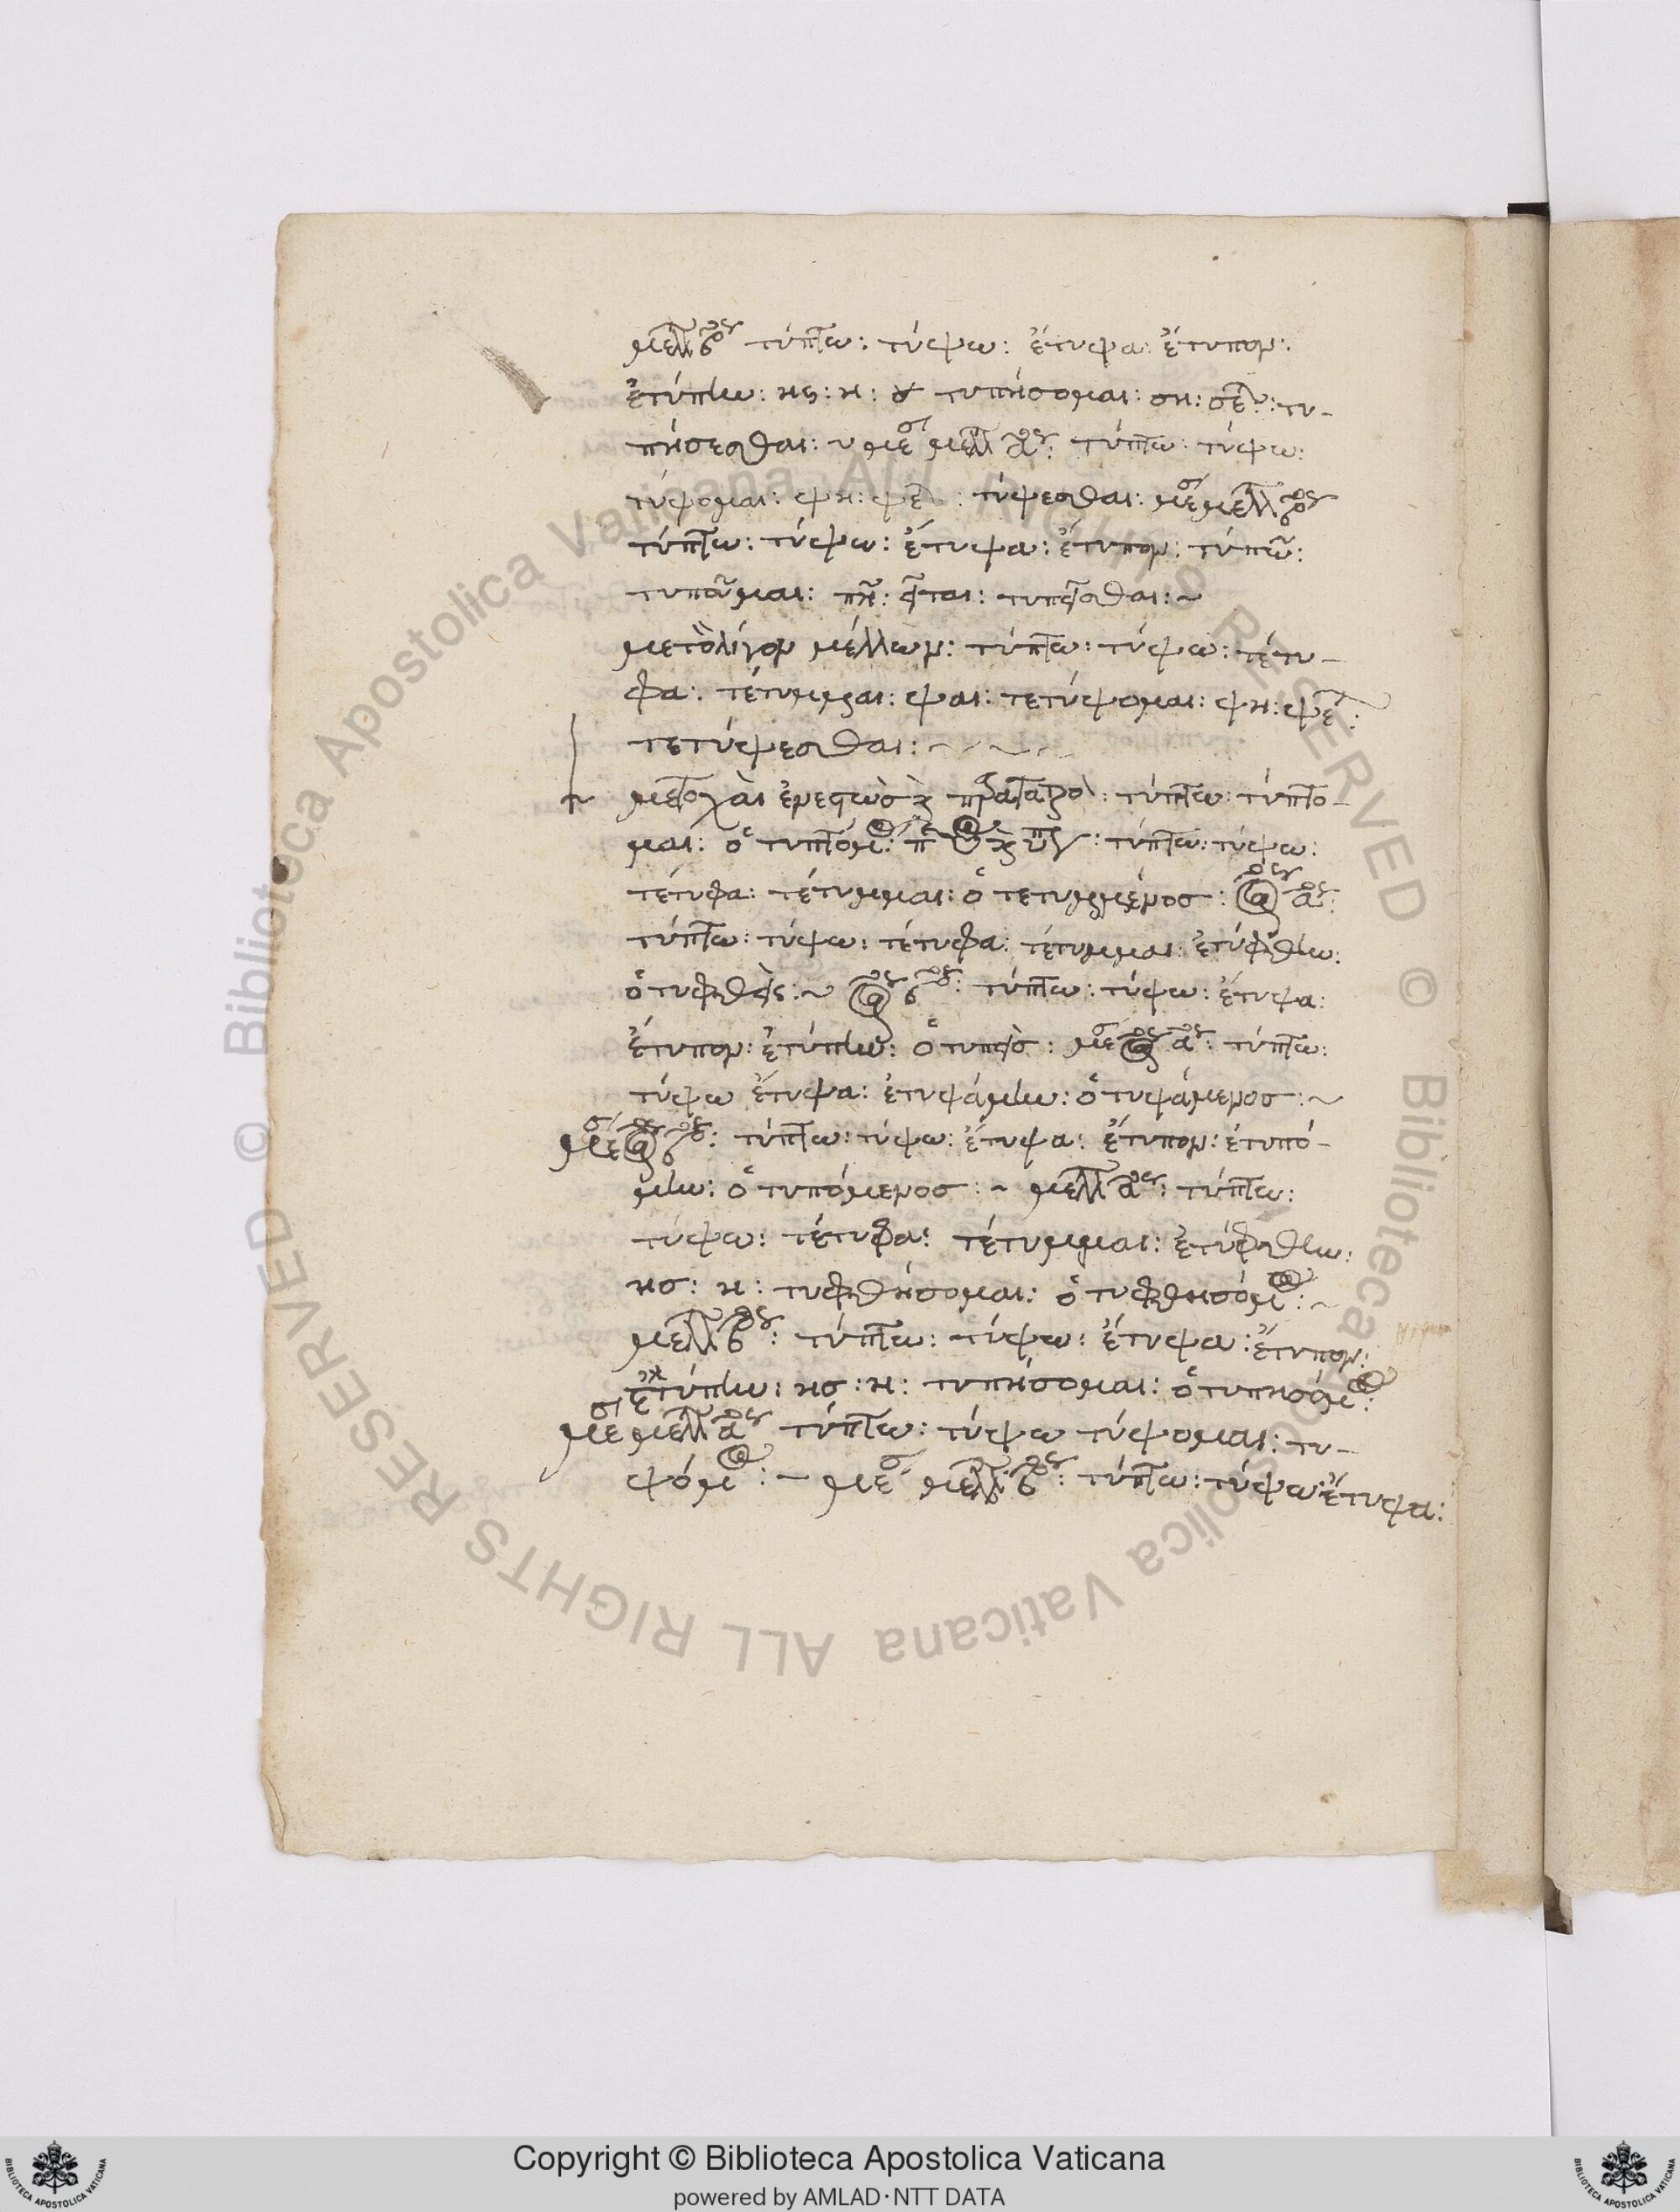 μελλ β^ου τύπτω: τύψω: ἔτυψα: ἔτυπον:
ἐτύπην: ης: η: τυπήσομαι: ση: σε: τυ-
πήσεσθαι: με^σ μελλ α^ου: τύπτω: τύψω:
τύψομαι: ψη: ψε: τύψεσθαι: με^σ μελλ β^ου
τύπτω: τύψω: ἔτυψα: ἔτυπον: τυπῶ:
τυποῦμαι: πῆ: εῖται: τυπεῖσθαι: ~
μετὀλίγον μέλλων: τύπτω: τύψω: τέτυ-
φα: τέτυμμαι: ψαι: τετύψομαι: ψη: ψε:
τετύψεσθαι: ~ ~ ~
μετοχαὶ ἐνεστὼς καὶ πρτατικὸ: τύπτω: τύπτο-
μαι: ὁ τυπτόμ: π καὶ ὑπ: τύπτω: τύψω:
τέτυφα: τέτυμμαι: ὁ τετυμμένος: α^ου:
τύπτω: τύψω: τέτυφα: τέτυμμαι: ἐτύφθην:
ὁ τυφθείς: ~ β^ου: τύπτω: τύψω: ἔτυψα:
ἔτυπον: ἐτύπην: ὁ τυπεὶς: με^σ α^ου: τύπτω:
τύψω ἔτυψα: ἐτυψάμην: ὁ τυψάμενος: ~
με^σ β^ου: τύπτω: τύψω: ἔτυψα: ἔτυπον: ἐτυπό-
μην: ὁ τυπόμενος: ~ μελλ α^ου: τύπτω:
τύψω: τέτυφα: τέτυμμαι: ἐτύφθην:
ης: η: τυφθήσομαι: ὁ τυφθησόμ: ~
μελλ β^ου: τύπτω: τύψω: ἔτυψα: ἔτυπον:
ἐτύπην: ης: η: τυπήσομαι: ὁ τυπησόμ:
με^σ μελλ α^ου τύπτω: τύψω τύψομαι: τυ-
ψόμ: ~ με^σ μελλ β^ου: τύπτω: τύψω: ἔτυψα:
Copyright © Biblioteca Apostolica Vaticana
powered by AMLAD·NTT DATA